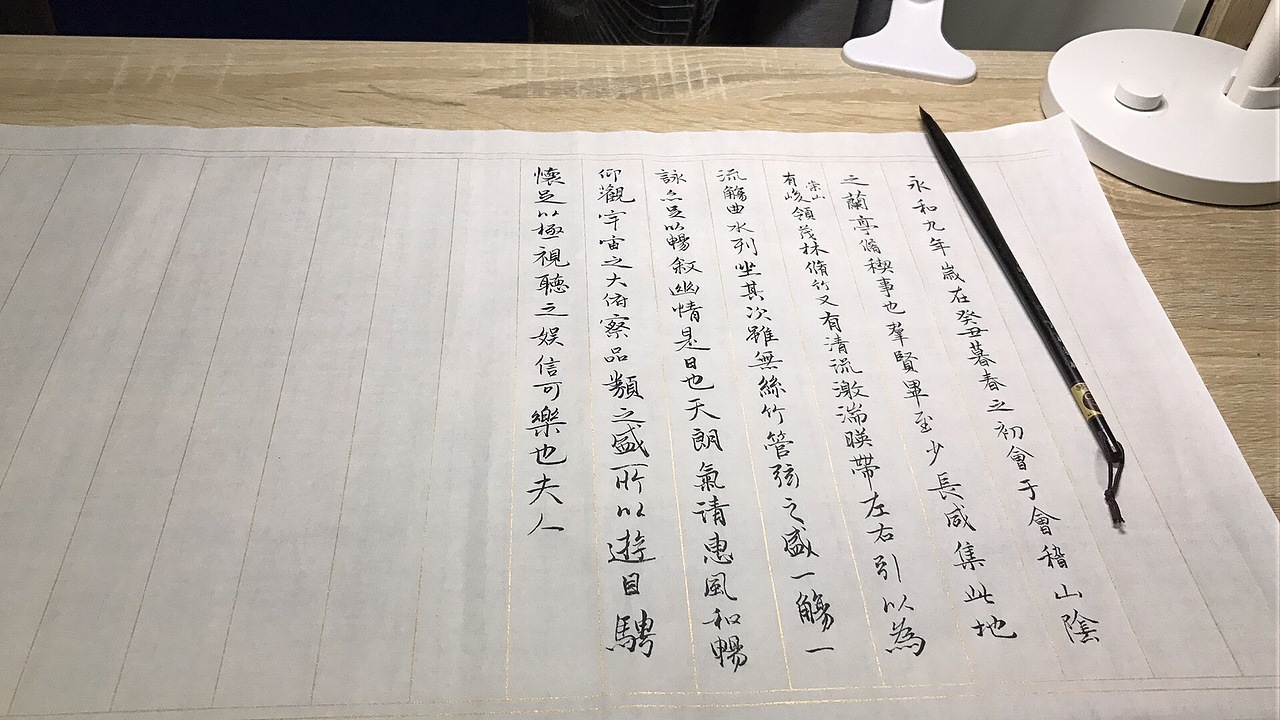 永和九年歲在癸丑暮春之初會于會稽山陰
之蘭亭脩稧事也羣賢畢至少長咸集此地
有崇山峻領茂林脩竹又有清流激湍暎帶左右引以為
流觴曲水列坐其次雖無絲竹管弦之盛一觴一
詠亦足以暢敘幽情是日也天朗氣清惠風和暢
仰觀宇宙之大俯察品類之盛所以遊目騁
懷足以極視聽之娛信可樂也夫人